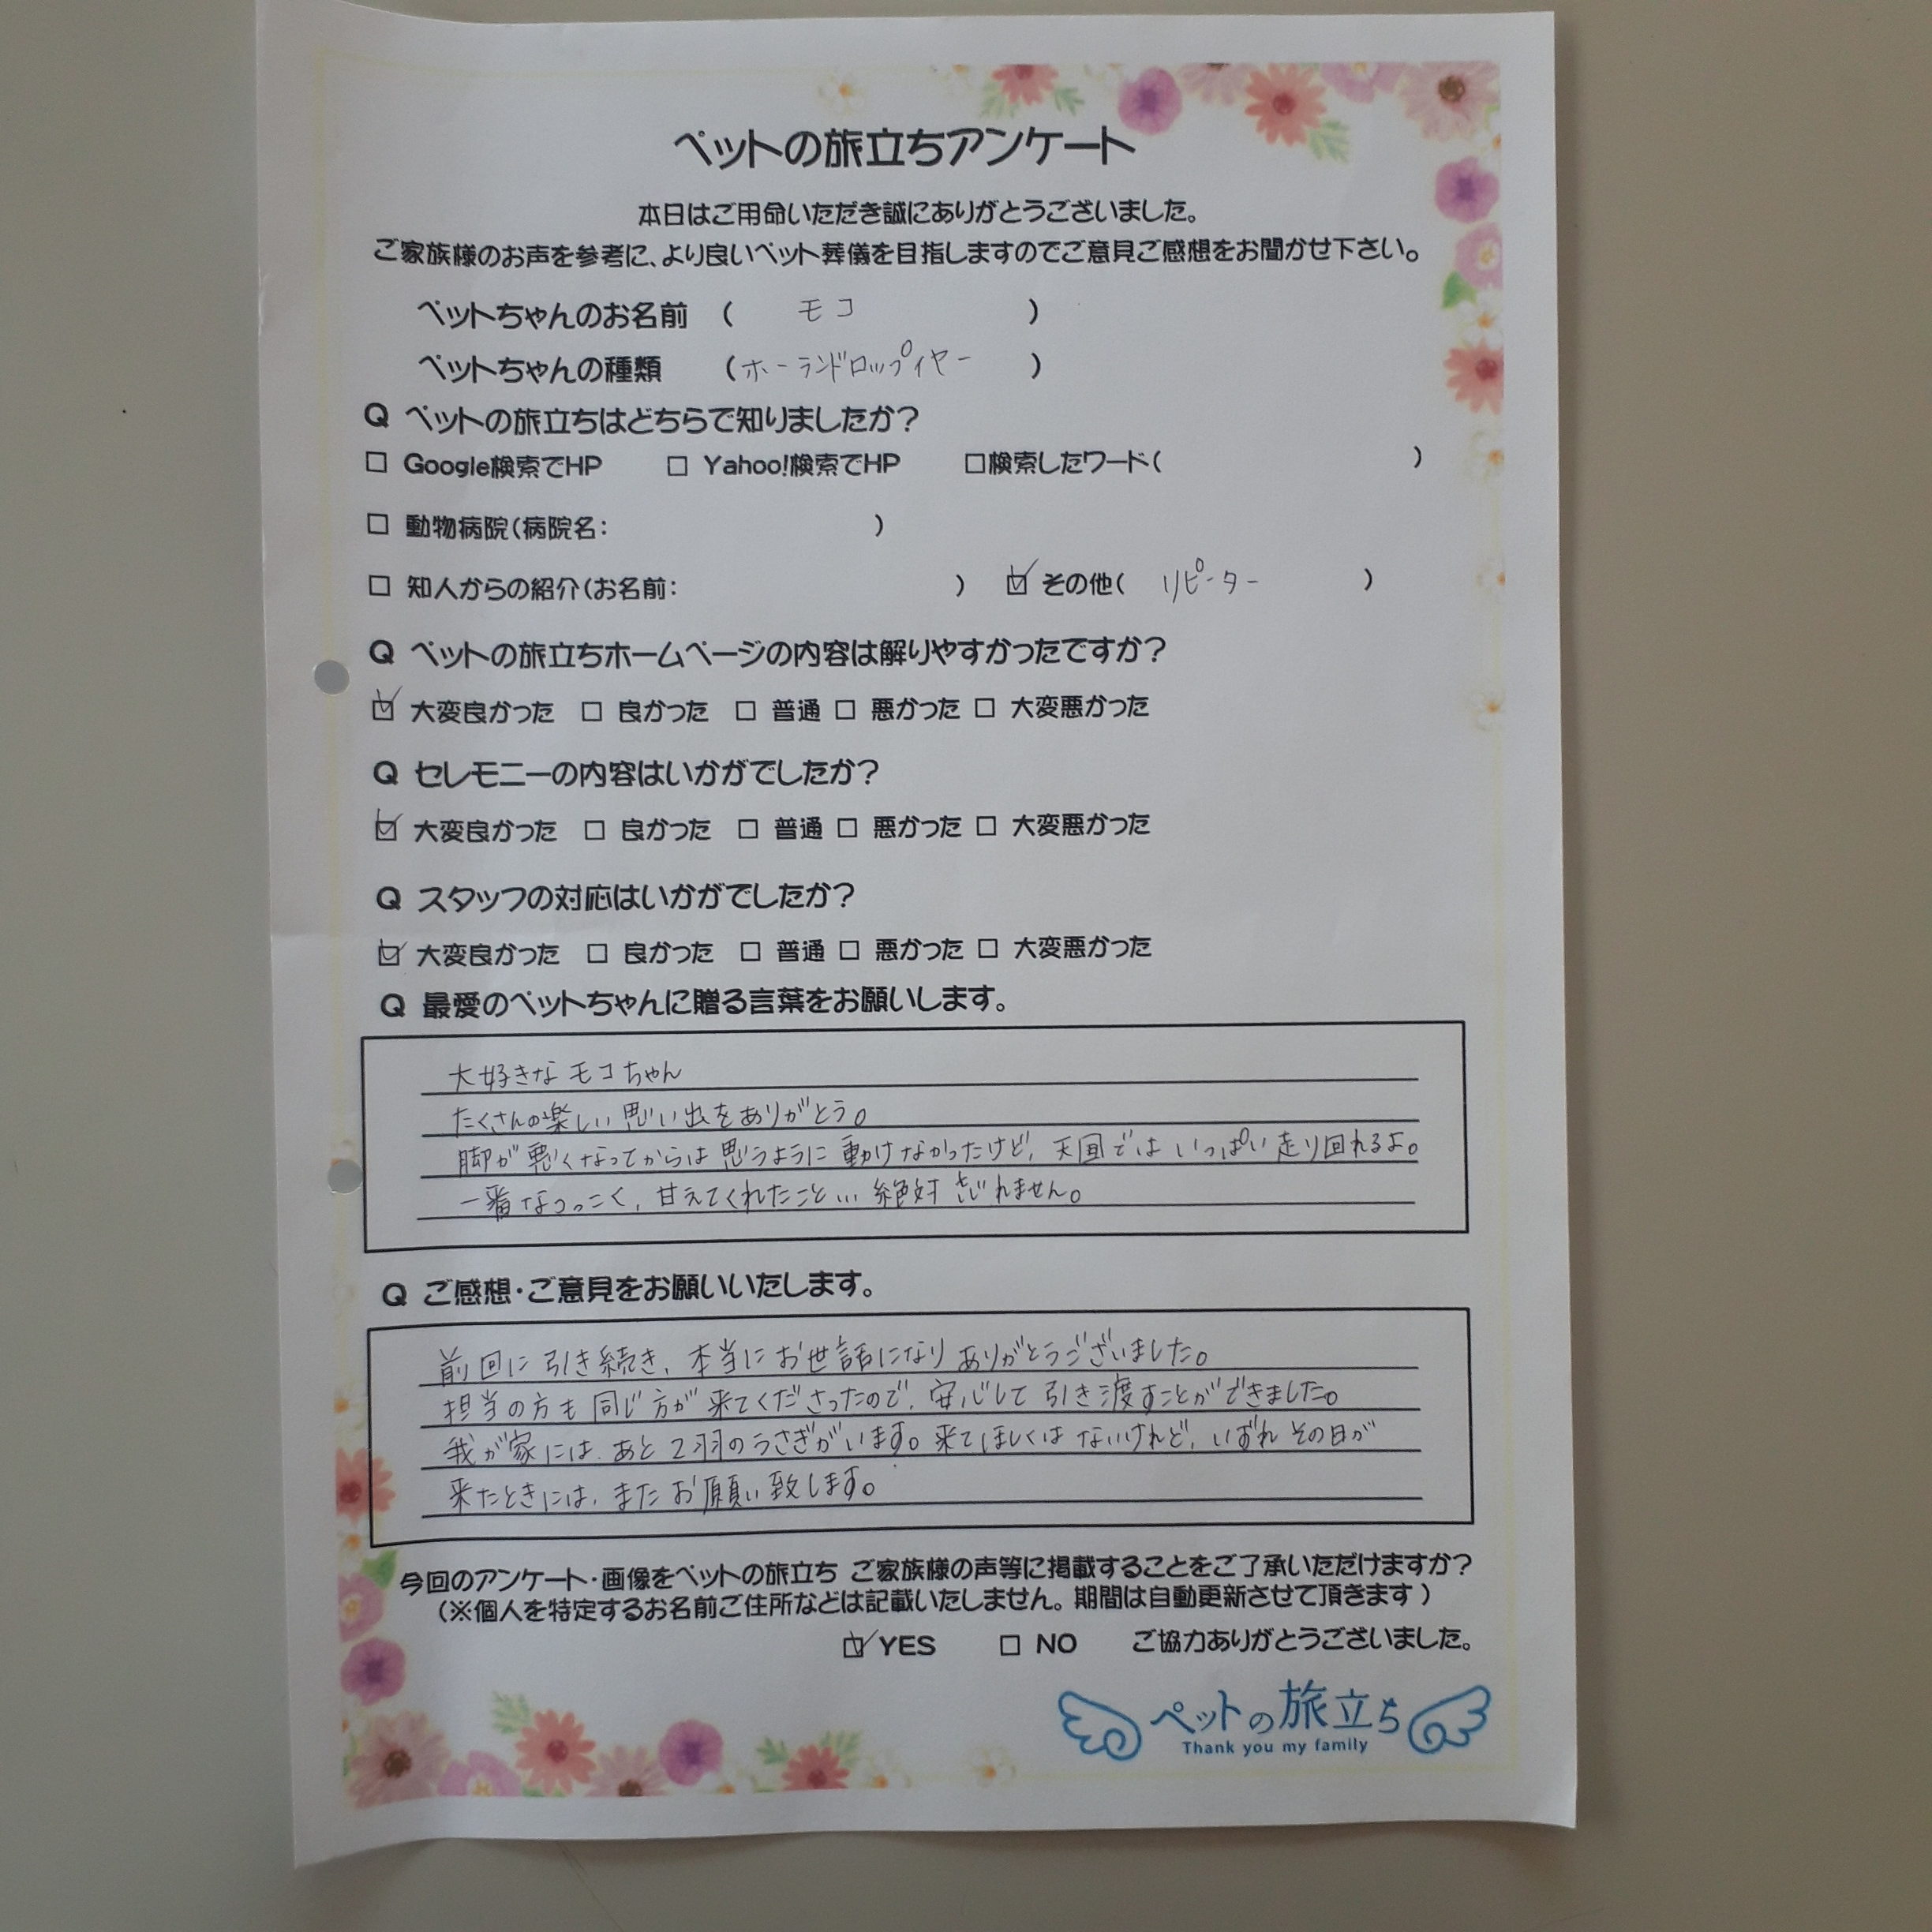 ペットの旅立ちアンケート
本日はご用命いただき誠にありがとうございました。
ご家族様のお声を参考に、より良いペット葬儀を目指しますのでご意見ご感想をお聞かせ下さい。
ペットちゃんのお名前 ( モコ )
ペットちゃんの種類 (ホーランドロップイヤー )
Q ペットの旅立ちはどちらで知りましたか?
□ Google検索でHP □ Yahoo!検索でHP □検索したワード( )
□ 動物病院(病院名: )
□ 知人からの紹介(お名前: ) ☑ その他( リピーター )
Q ペットの旅立ちホームページの内容は解りやすかったですか?
☑ 大変良かった □ 良かった □ 普通 □ 悪かった □ 大変悪かった
Q セレモニーの内容はいかがでしたか?
☑ 大変良かった □ 良かった □ 普通 □ 悪かった □ 大変悪かった
Q スタッフの対応はいかがでしたか?
☑ 大変良かった □ 良かった □ 普通 □ 悪かった □ 大変悪かった
Q 最愛のペットちゃんに贈る言葉をお願いします。
大好きなモコちゃん
たくさんの楽しい思い出をありがとう。
脚が悪くなってからは思うように動けなかったけど、天国ではいっぱい走り回れるよ。
一番なつっこく、甘えてくれたこと…絶対忘れません。
Q ご感想・ご意見をお願いいたします。
前回に引き続き、本当にお世話になりありがとうございました。
担当の方も同じ方が来てくださったので、安心して引き渡すことができました。
我が家には、あと2羽のうさぎがいます。来てほしくはないけれど、いずれその日が
来たときには、またお願い致します。
今回のアンケート・画像をペットの旅立ち ご家族様の声等に掲載することをご了承いただけますか?
(※個人を特定するお名前ご住所などは記載いたしません。期間は自動更新させて頂きます)
☑ YES □ NO ご協力ありがとうございました。
ペットの旅立ち
Thank you my family